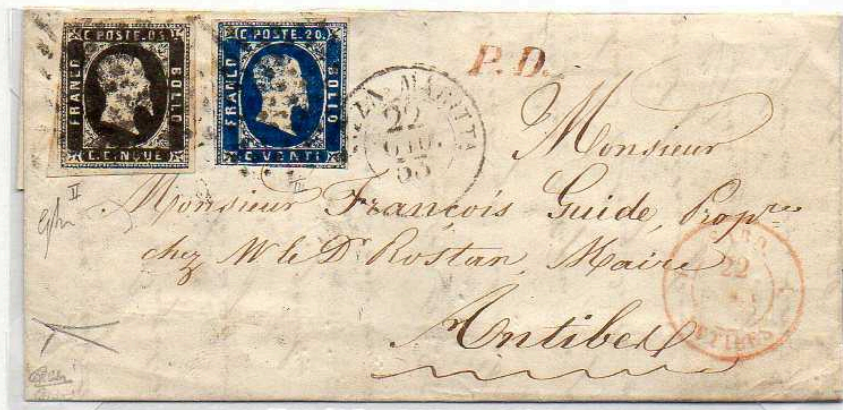 C. POSTE. 05.
FRANCO
BOLLO
C. CINQUE
C. POSTE. 20.
FRANCO
BOLLO
C. VENTI
P.D.
22
53
Monsieur
Monsieur François Guide, Propre
chez Mr le Dr Rostan, Maire
Antibes
22
ANTIBES
II